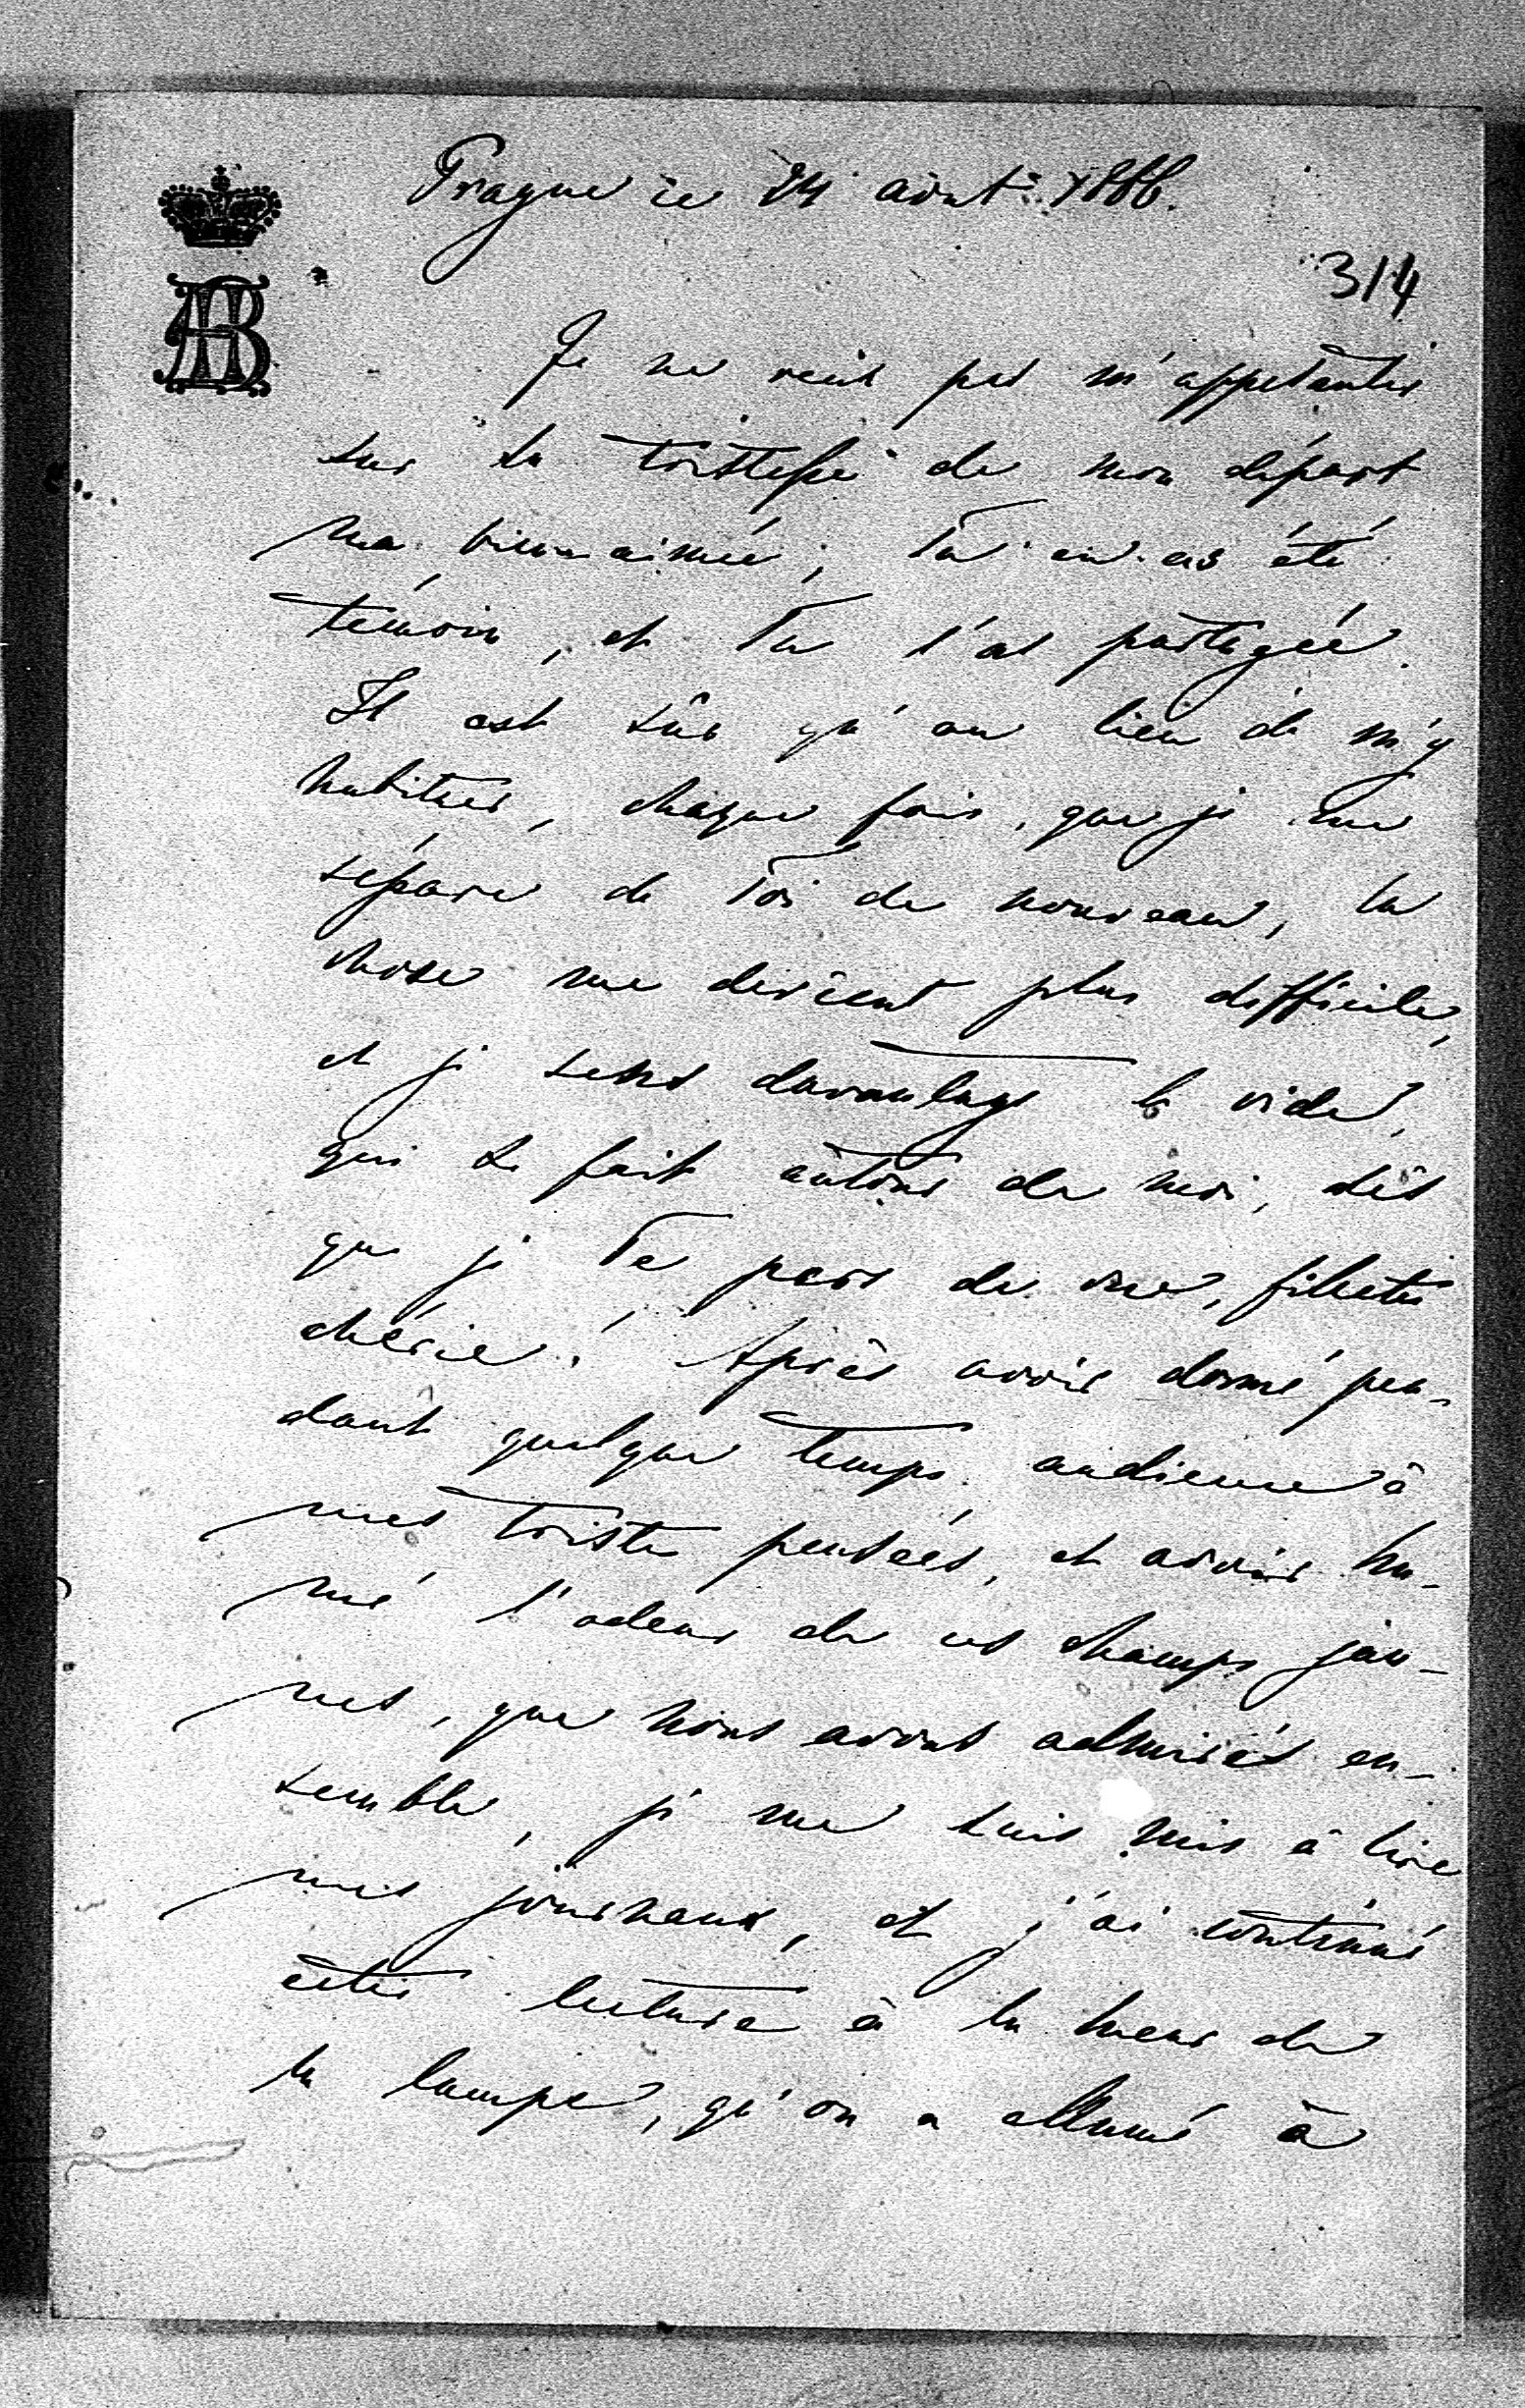 Prague ce 24 août 1886.
314
Je ne veux pas m'appesantir
sur la tristesse de mon départ
ma bien-aimée; Tu en as été
témoin, et Tu l'as partagée.
Il est sûr qu'au lieu de m'y
habituer, chaque fois, que je me
sépare de Toi de nouveau, la
chose me devient plus difficile,
et je sens davantage le vide,
qui se fait autour de moi, dès
que je Te perds de vue, fillette
chérie! Après avoir donné pen-
dant quelque temps audience à
mes tristes pensées, et avoir hu-
mé l'odeur de ces champs jau-
nes, que nous avons admirés en-
semble, je me suis mis à lire
mes journaux, et j'ai continué
cette lecture à la lueur de
la lampe, qu'on a allumé à